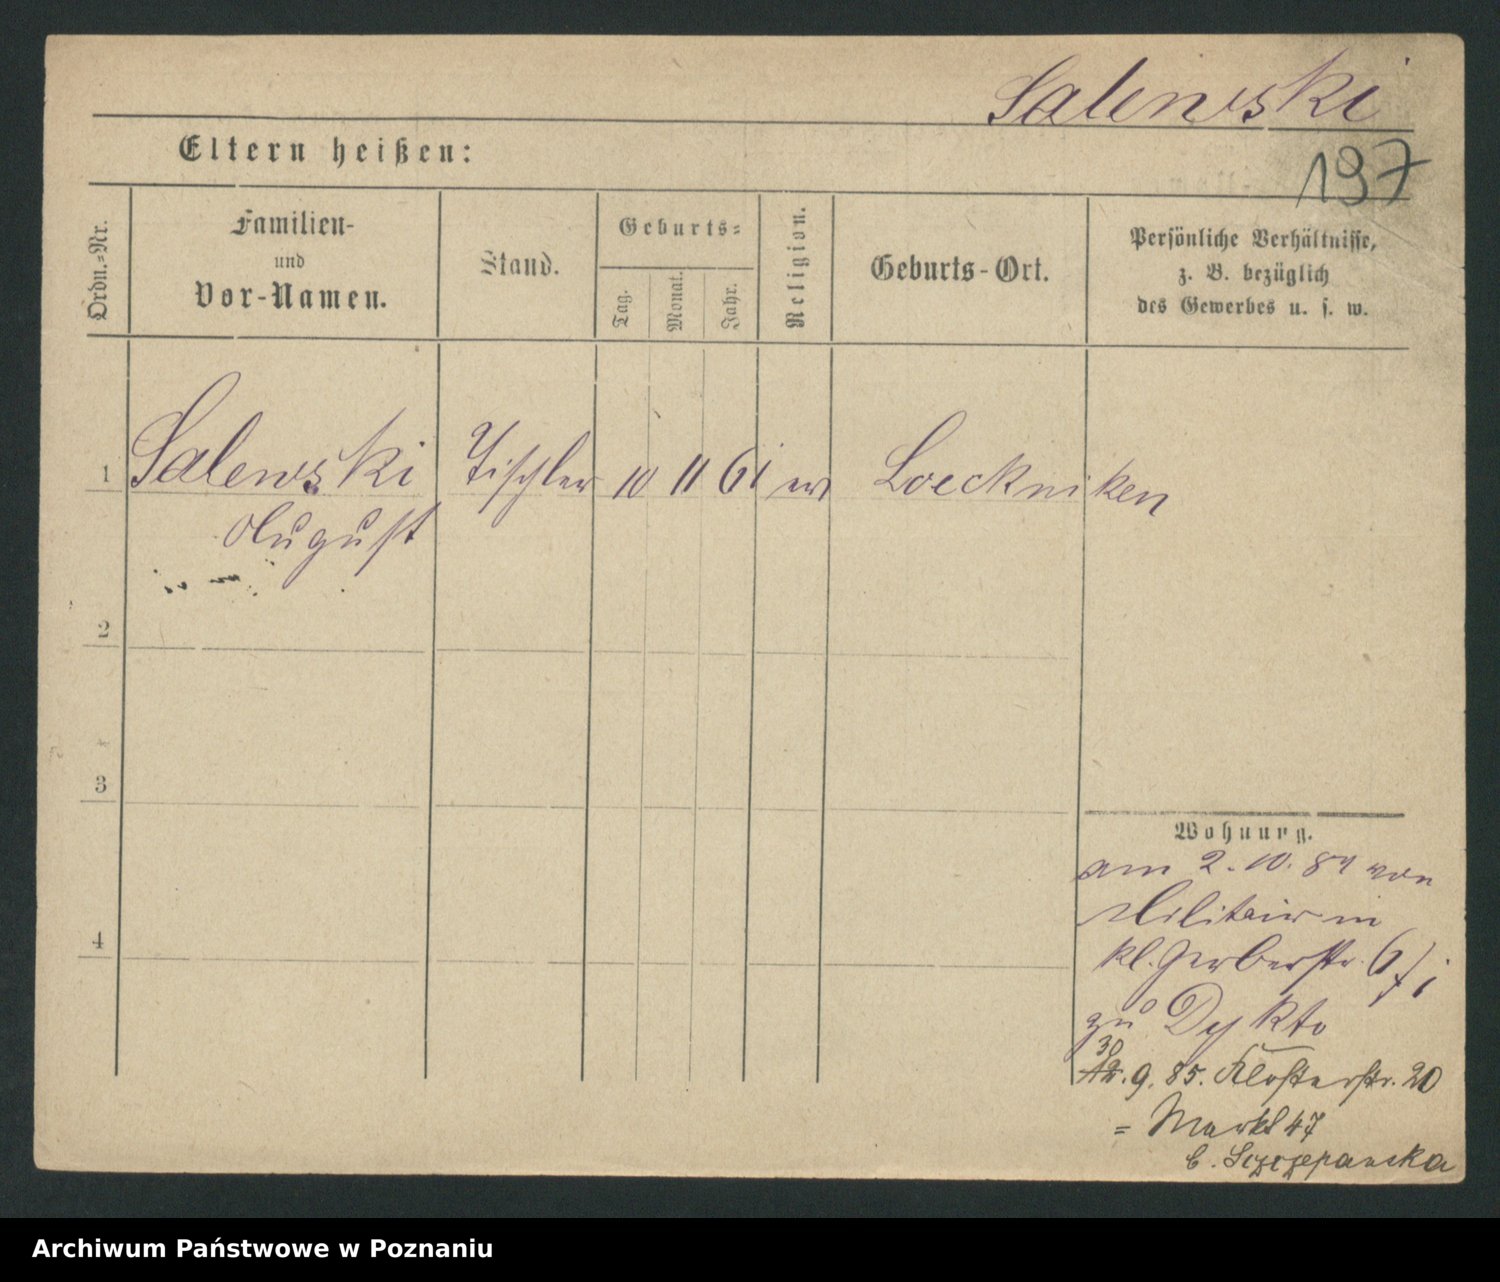 Salewski
197
Eltern heißen:
Ordn.=Nr.
Familien-
und
Vor-Namen.
Stand.
Geburts=
Tag.
Monat.
Jahr.
Religion.
Geburts-Ort.
Persönliche Verhältnisse,
z. B. bezüglich
des Gewerbes u. s. w.
1 Salewski Tischler 10 11 61 ev Loeckniken
August
2
3
4
Wohnung.
am 2.10.84 von
Militair in
kl. Gerberstr. 6/I
zu Dykto
30
9. 85. Klosterstr. 20
= Markt 47
b. Szczepanska
Archiwum Państwowe w Poznaniu